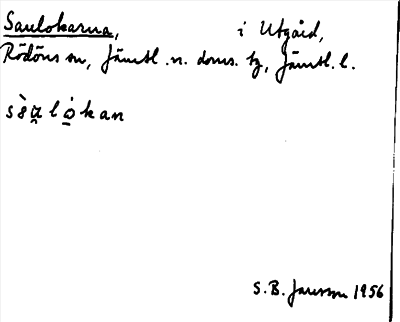 Saulokarna, i Utgård,
Rödöns sn, Jämtl. n. doms. tg, Jämtl. l.
sèu̯lókan
S. B. Jansson 1956